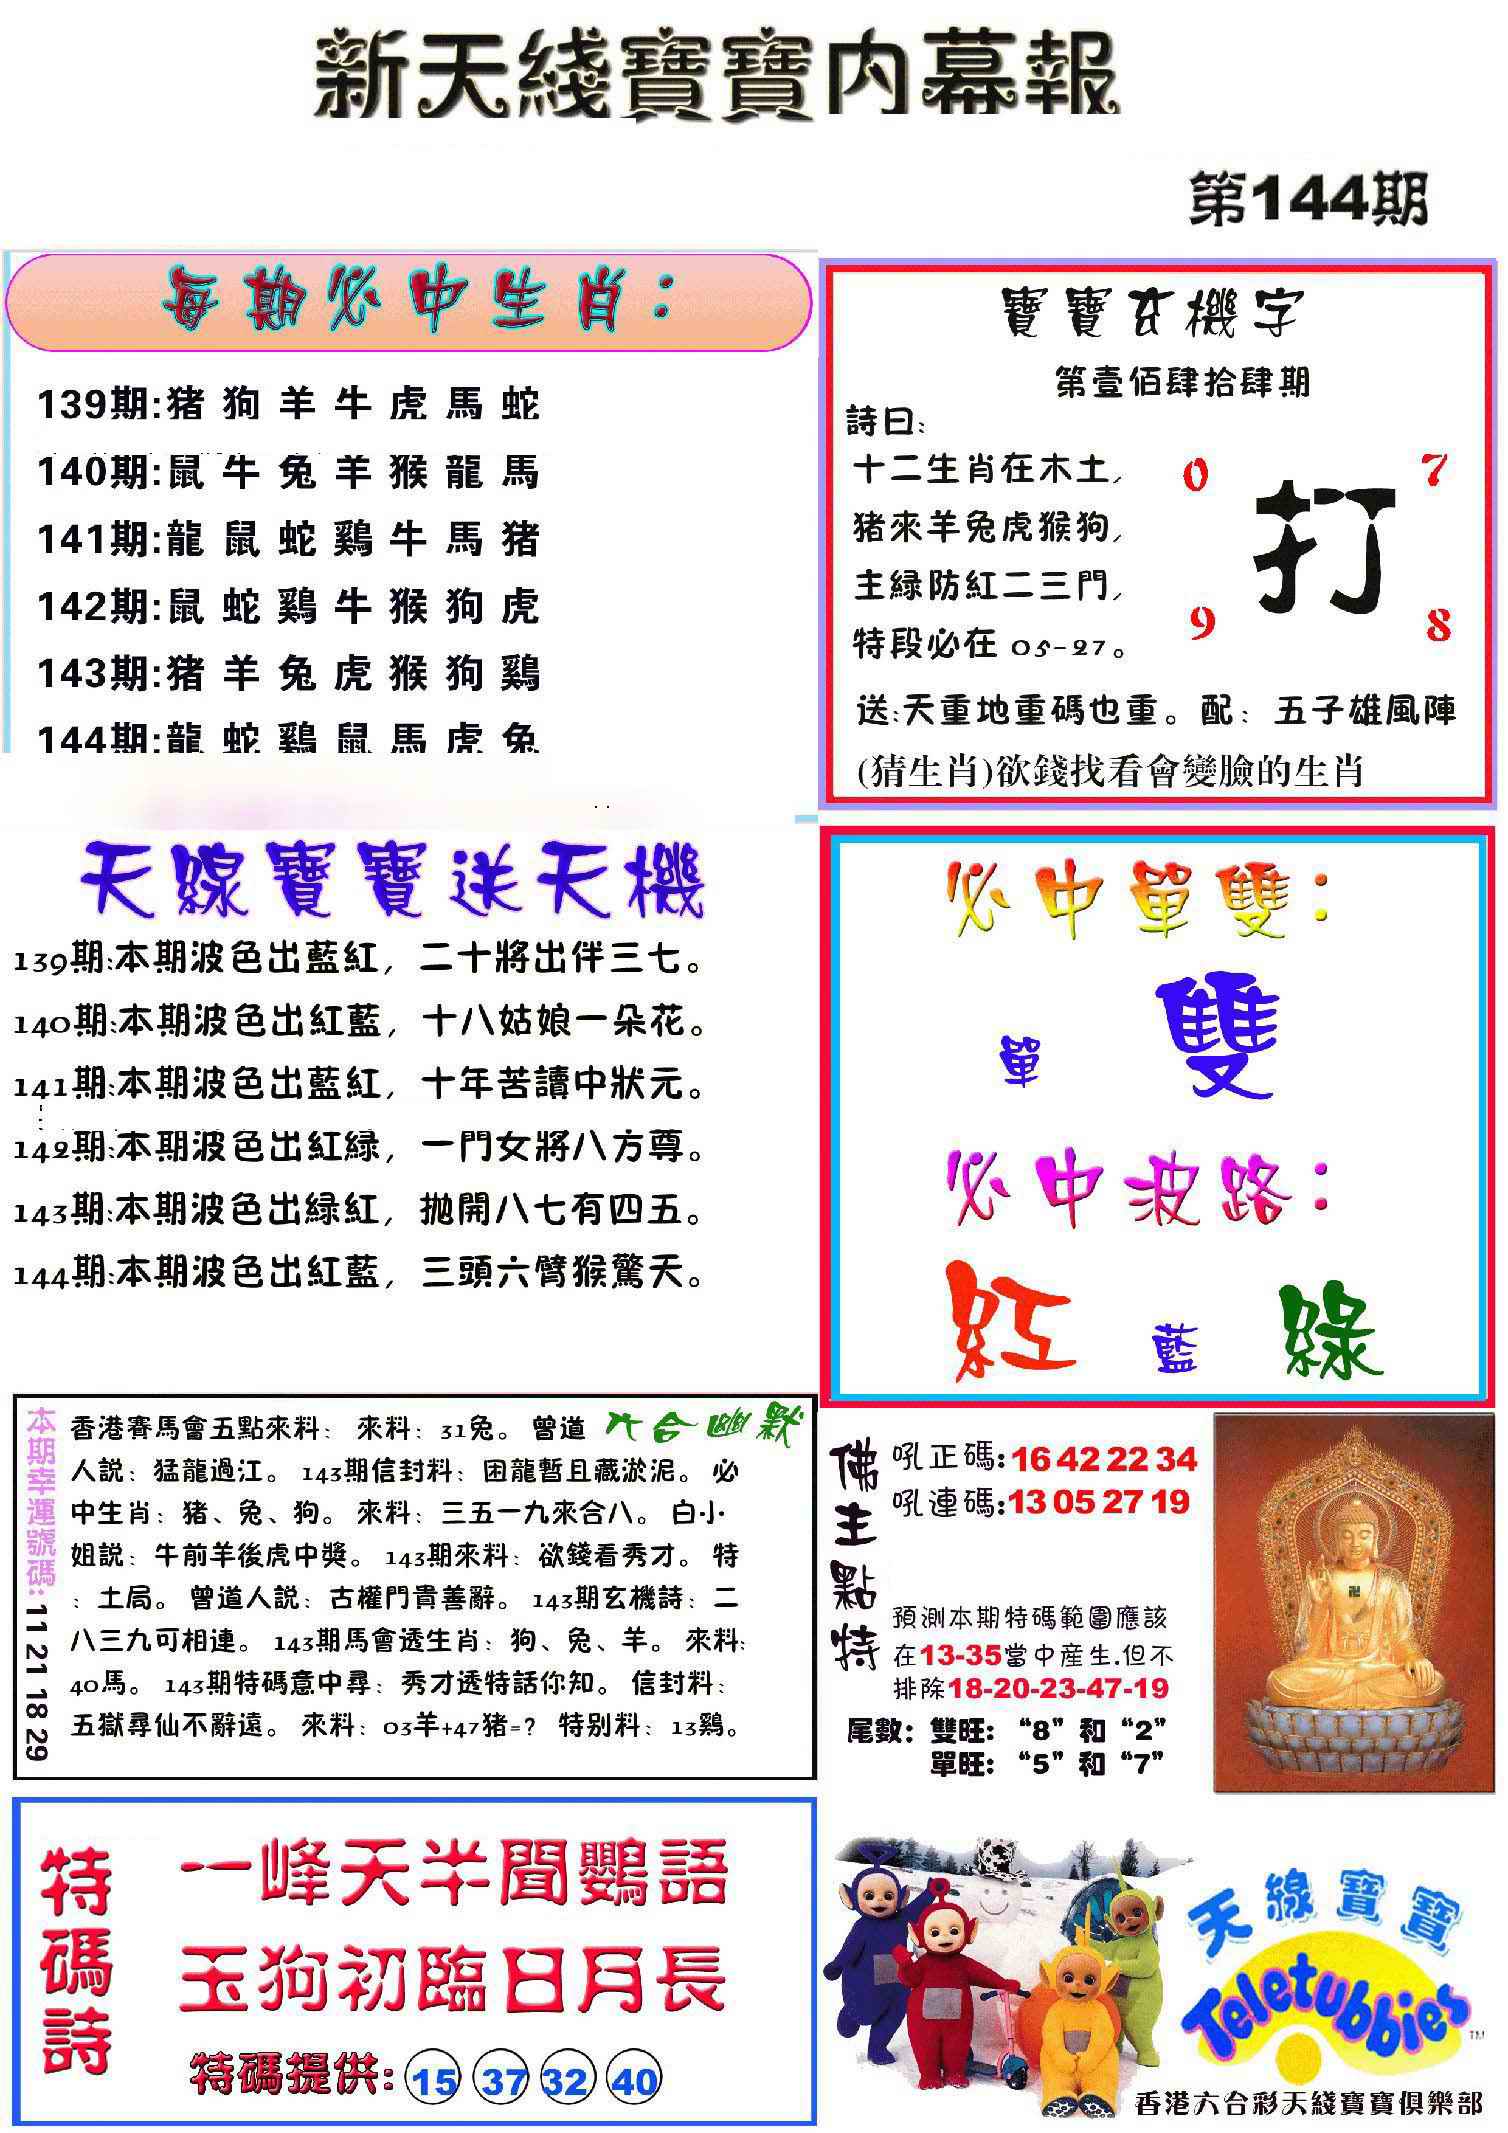 新天綫寶寶内幕報
第144期
每期必中生肖：
139期:猪 狗 羊 牛 虎 馬 蛇
140期:鼠 牛 兔 羊 猴 龍 馬
141期:龍 鼠 蛇 鷄 牛 馬 猪
142期:鼠 蛇 鷄 牛 猴 狗 虎
143期:猪 羊 兔 虎 猴 狗 鷄
144期:龍 蛇 鷄 鼠 馬 虎 兔
寶寶玄機字
第壹佰肆拾肆期
詩曰:
十二生肖在木土,
猪來羊兔虎猴狗,
主緑防紅二三門,
特段必在 05-27。
0 7
打
9 8
送:天重地重碼也重。配: 五子雄風陣
(猜生肖)欲錢找看會變臉的生肖
天線寶寶送天機
139期:本期波色出藍紅, 二十將出伴三七。
140期:本期波色出紅藍, 十八姑娘一朵花。
141期:本期波色出藍紅, 十年苦讀中狀元。
142期:本期波色出紅緑, 一門女將八方尊。
143期:本期波色出緑紅, 拋開八七有四五。
144期:本期波色出紅藍, 三頭六臂猴驚天。
必中單雙：
單 雙
必中波路：
紅 藍 綠
本期幸運號碼: 11 21 18 29
六合幽默
香港賽馬會五點來料: 來料: 31兔。 曾道
人説: 猛龍過江。 143期信封料: 困龍暫且藏淤泥。 必
中生肖: 猪、兔、狗。 來料: 三五一九來合八。 白小
姐説: 牛前羊後虎中獎。 143期來料: 欲錢看秀才。 特
: 土局。 曾道人説: 古權門貴善辭。 143期玄機詩: 二
八三九可相連。 143期馬會透生肖: 狗、兔、羊。 來料:
40馬。 143期特碼意中尋: 秀才透特話你知。 信封料:
五獄尋仙不辭遠。 來料: 03羊+47猪=? 特别料: 13鷄。
佛主點特
吼正碼:16 42 22 34
吼連碼:13 05 27 19
預測本期特碼範圍應該
在13-35當中産生.但不
排除18-20-23-47-19
尾數: 雙旺: “8” 和 “2”
單旺: “5” 和 “7”
特碼詩
一峰天半聞鸚語
玉狗初臨日月長
特碼提供: 15 37 32 40
天線寶寶
Teletubbies
TM
香港六合彩天綫寶寶俱樂部